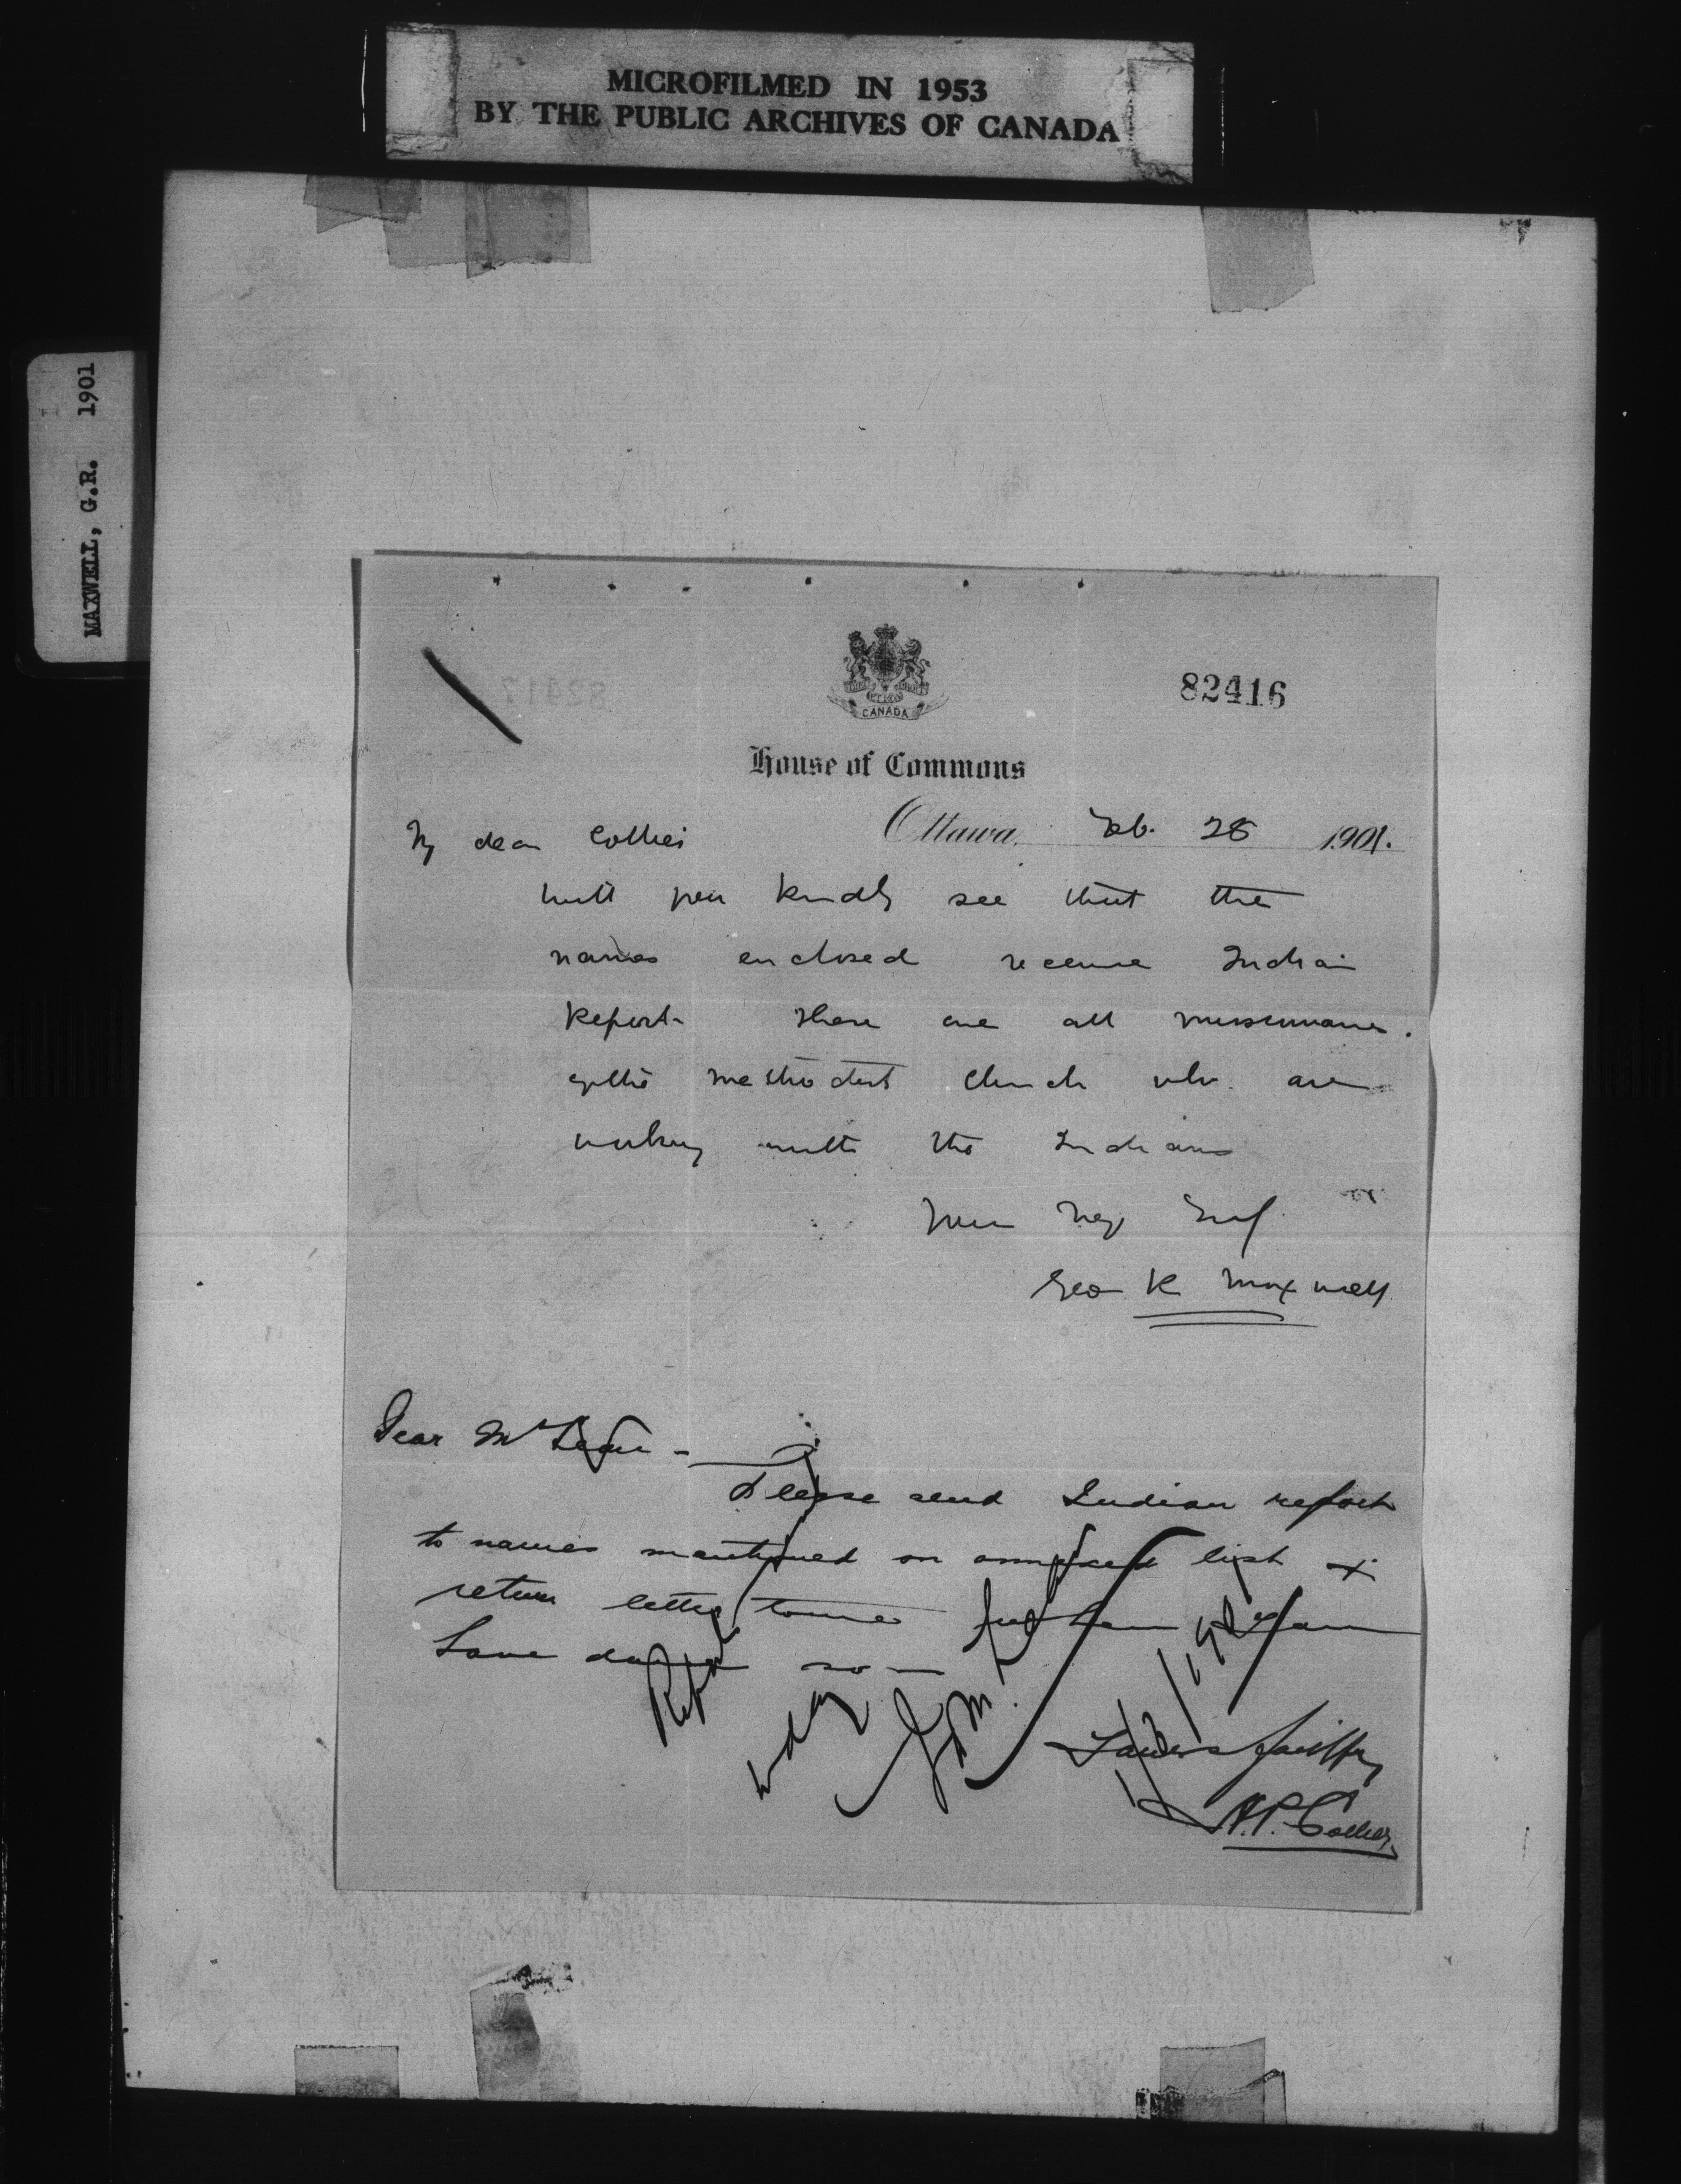 MICROFILMED IN 1953
BY THE PUBLIC ARCHIVES OF CANADA
MAXWELL, G.R. 1901
82416
82417
CANADA
House of Commons
Ottawa, Feb. 28 1901.
My dear Collier
Will you kindly see that the
names enclosed receive Indian
Report. These are all missionaries
of the Methodist Church who are
working with the Indians
Yours
Geo R Maxwell
Dear McLean -
Please send Indian report
to names mentioned on annexed list &
return letter to me
have done so
Yours faithfully
H.P. Collier